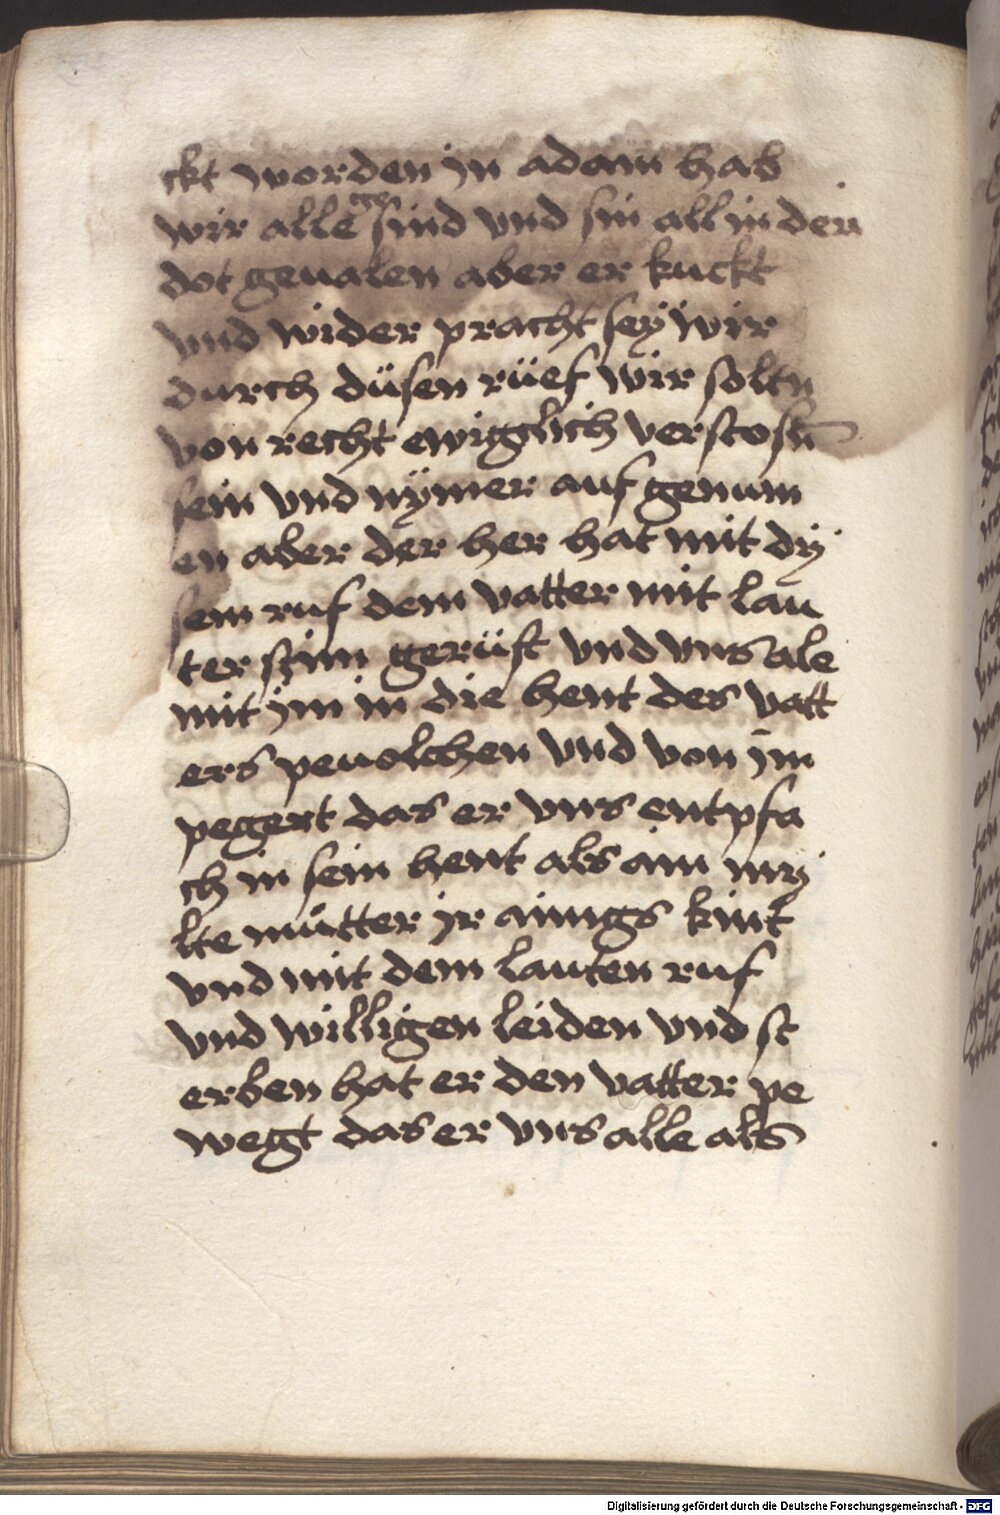 ckt worden in adam hab
wir alle gesind vnd sin all in den
dot geualen aber er kuckt
vnd wider pracht seÿ wir
durch düsen rüef wir soltn
von recht ewigglich verstosn̄
sein vnd nÿmer auf genum
en aber der her hat mit dÿ
sem ruf dem vatter mit lau
ter stim gerüft vnd vns ale
mit jm in die hent des vatt
ers peuolchen vnd von jm
pegert das er vns entpfa
ch in sein hent als ain mÿ
lte mutter jr ainigs kint
vnd mit dem lauten ruf
vnd willigen leiden vnd st
erben hat er den vatter pe
wegt das er vns alle als
Digitalisierung gefördert durch die Deutsche Forschungsgemeinschaft - DFG